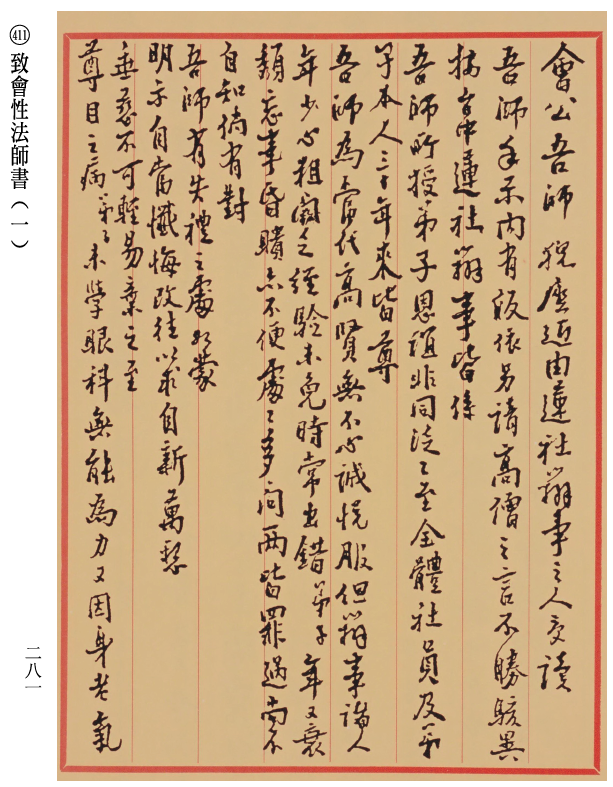 ㊶① 致會性法師書（一）
會公吾師 猊座近由蓮社辦事之人交讀
吾師手示內有皈依另請高僧之言不勝駭異
按台中蓮社辦事皆係
吾師所授弟子恩誼非同泛泛至全體社員及弟
子本人三十年來皆尊
吾師為當代高賢無不心誠悅服但辦事諸人
年少心粗乏經驗未免時常出錯弟子年又衰
頹忘事昏聵亦不便處處多問兩皆罪過尚不
自知倘有對
吾師有失禮之處如蒙
明示自當懺悔改往以求自新萬懇
垂慈不可輕易棄之至
尊目之病弟子未學眼科無能為力又因身老氣
二八一